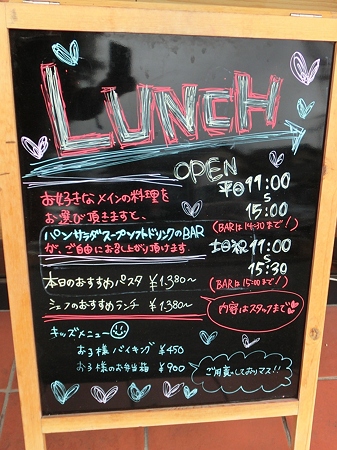 LUNCH
OPEN
平日 11:00
S
15:00
(BARは14:30まで!)
土日祝 11:00
S
15:30
(BARは15:00まで!)
お好きなメインの料理を
お選び頂きますと、
パンサラダスープソフトドリンクのBAR
が、ご自由にお召し上がり頂けます。
本日のおすすめパスタ ¥1,380~
シェフのおすすめランチ ¥1,380~
内容はスタッフまで
キッズメニュー
お子様バイキング ¥450
お子様のお弁当箱 ¥900
ご用意しておりマス!!